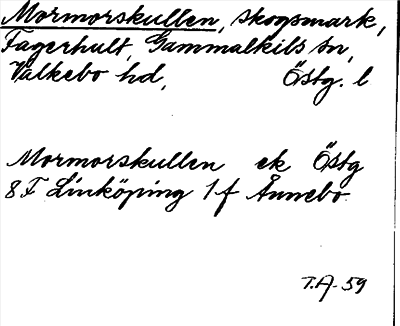 Mormorskullen, skogsmark,
Fagerhult, Gammalkils sn,
Valkebo hd, Östg. l
Mormorskullen ek Östg
8F Linköping 1f Ånnebo.
T.A. 59